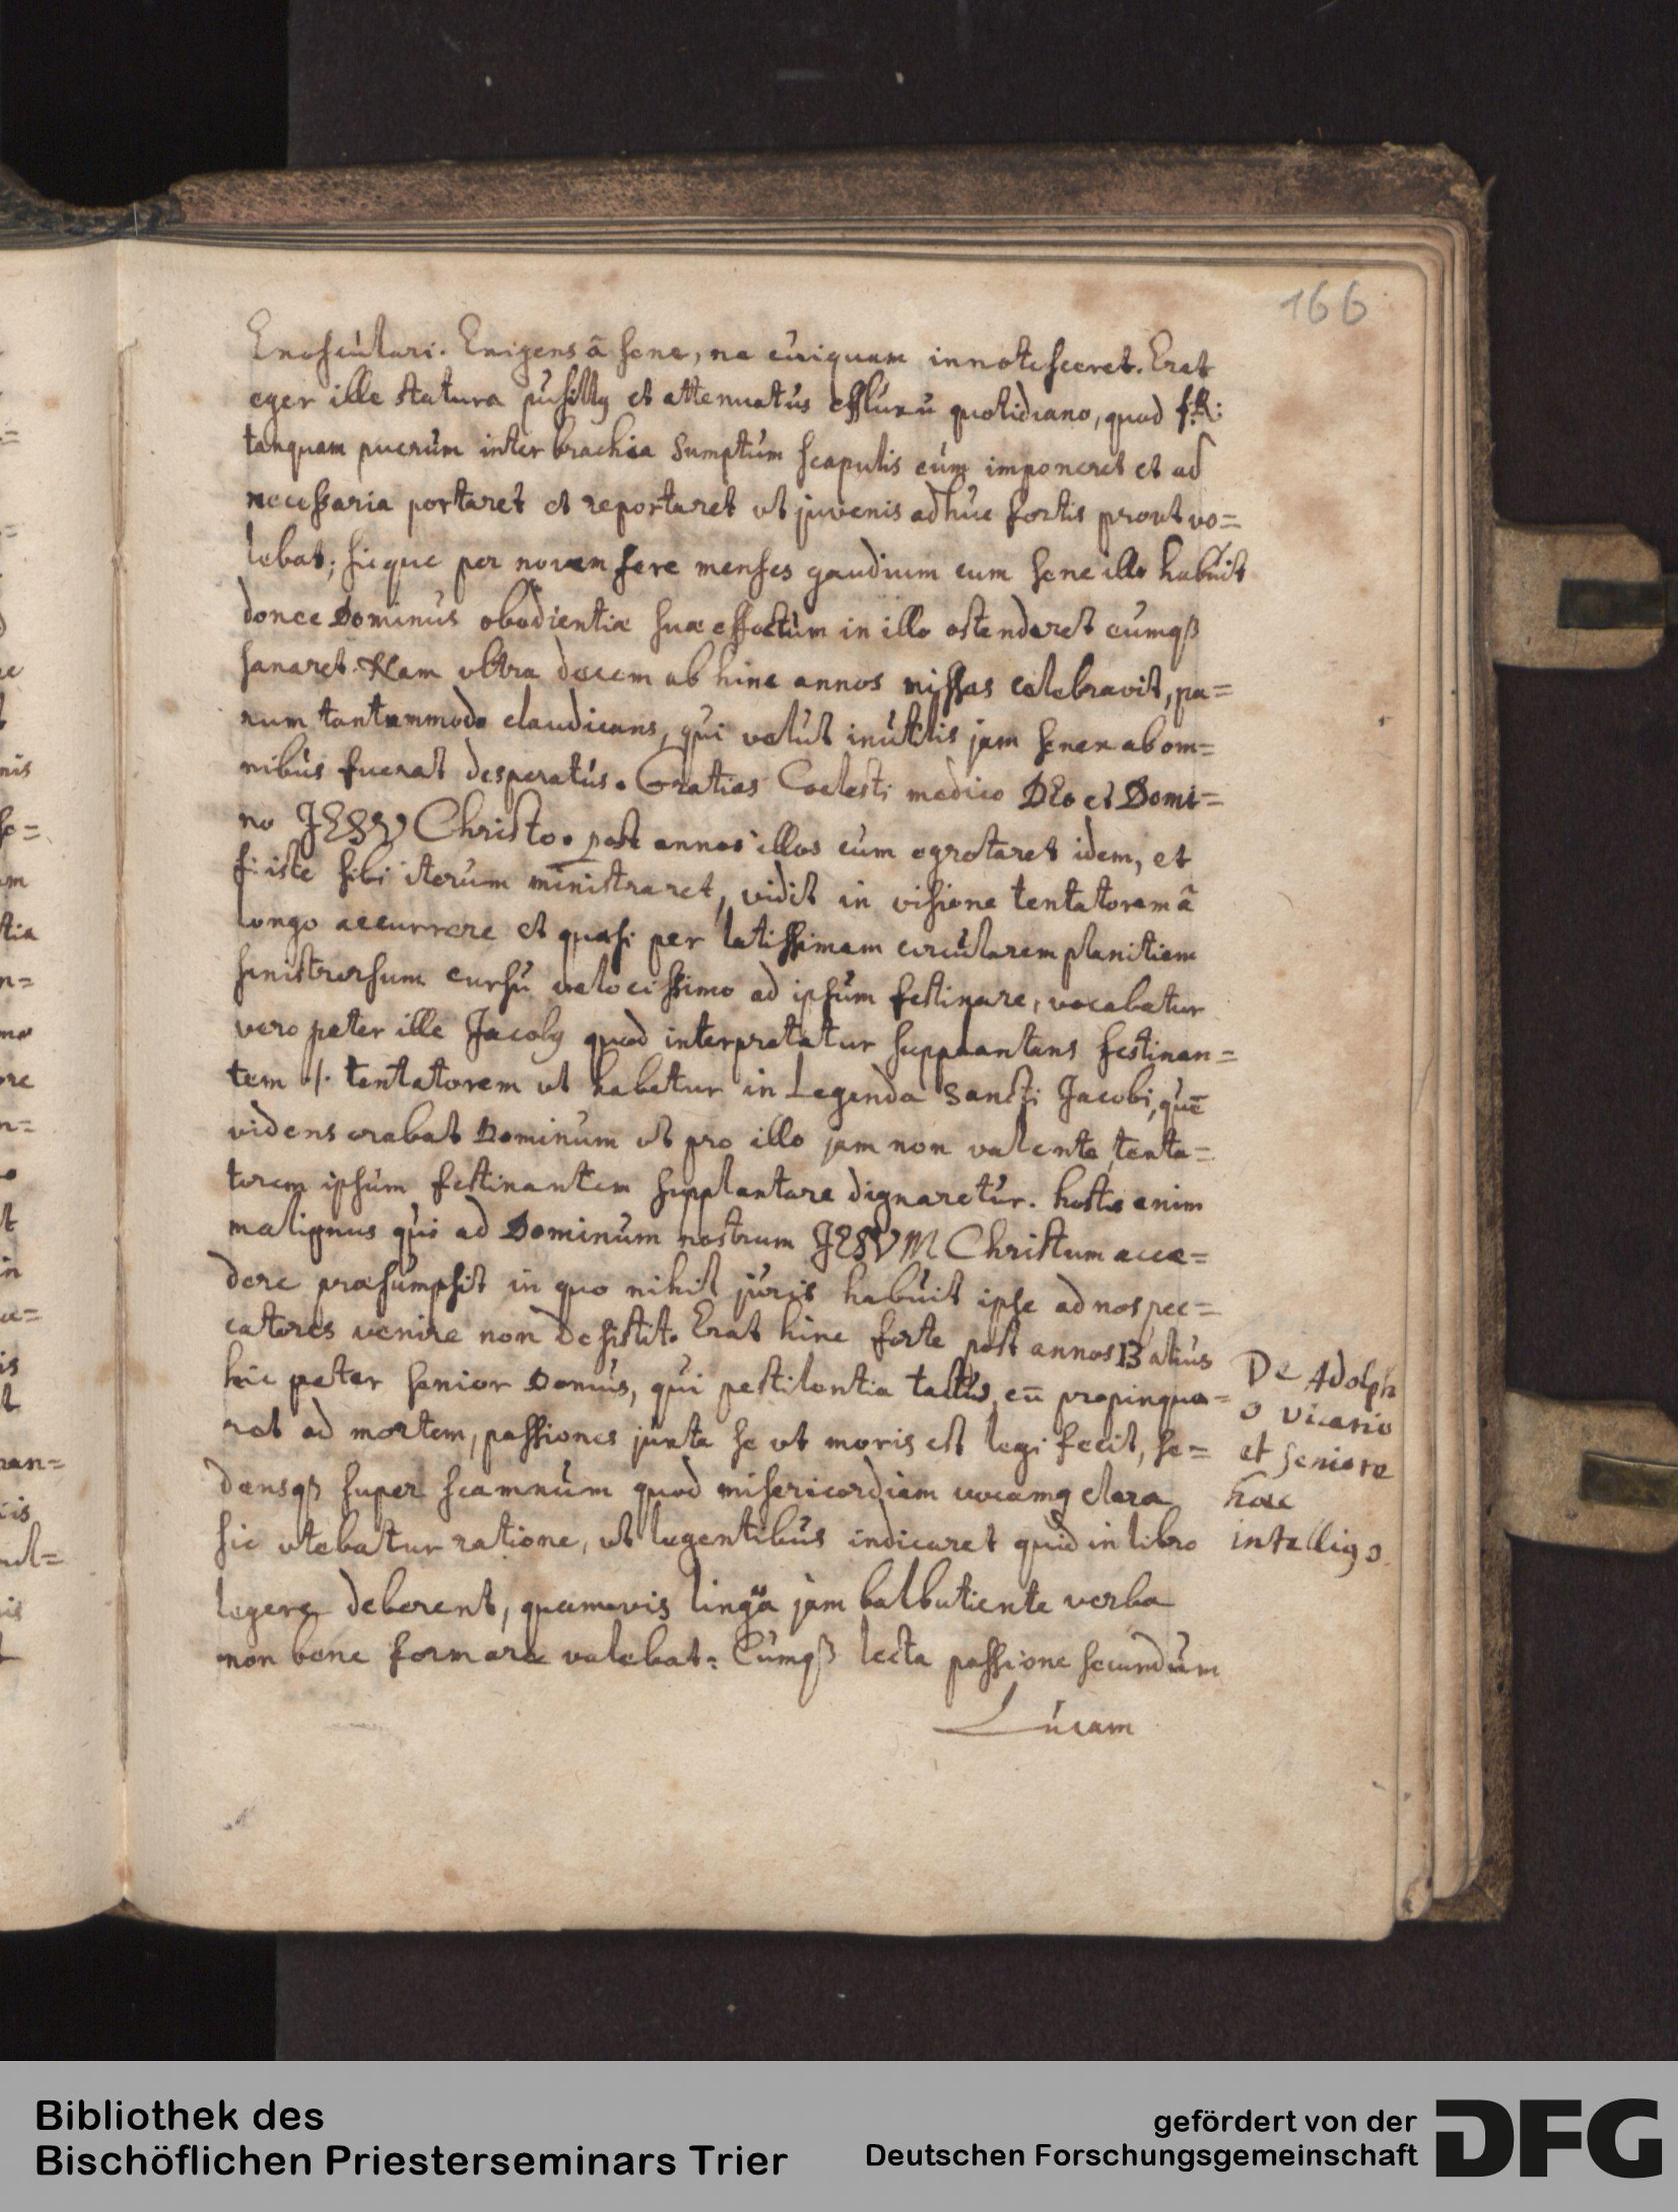 166
Exosculari. Exigens â sene, ne cuiquam innotesceret. Erat
eger ille statura pusillꝰ et attenuatus effluxu quotidiano, quod fR:
tanquam puerum inter brachia sumptum scapulis eum imponeret et ad
necessaria portaret et reportaret ut juvenis adhuc fortis prout vo=
lebat; sicque per novem fere menses gaudium cum sene illo habuit
donec Dominus obedientiæ suæ effectum in illo ostenderet eumqꝫ
sanaret. Nam ultra decem ab hinc annos missas celebravit, pa=
rum tantummodo claudicans, qui velut inutilis jam senex ab om=
nibus fuerat desperatus. Gratias Coelesti medico DEo et Domi=
no JESV Christo. post annos illos cum egrotaret idem, et
f: iste sibi iterum ministraret, vidit in visione tentatorem â
longo accurrere et quasi per latissimam circularem planitiem
sinistrorsum cursu velocissimo ad ipsum festinare, vocabatur
vero pater ille Jacobꝰ quod interpretatur supplantans festinan=
tem .|. tentatorem ut habetur in Legenda Sancti Jacobi, quē
videns orabat Dominum ut pro illo jam non valente, tenta=
torem ipsum festinantem supplantare dignaretur. hostis enim
malignus qui ad Dominum nostrum JESVM Christum acce=
dere præsumpsit in quo nihil juris habuit ipse ad nos pec=
catores venire non desistit. Erat hinc forte post annos 13 alius
hic pater senior Domus, qui pestilentia tactus, cū propinqua=
ret ad mortem, passiones juxta se ut moris est legi fecit, se=
densqꝫ super scamnum quod misericordiam vocamꝰ clara
sic utebatur ratione, ut legentibus indicaret quid in libro
legere deberent, quamvis lingua jam balbutiente verba
non bene formare valebat. Cumqꝫ lecta passione secundum
Lucam
De Adolph
o vicario
et seniore
haec
intelligo.
Bibliothek des
Bischöflichen Priesterseminars Trier
gefördert von der
Deutschen Forschungsgemeinschaft
DFG